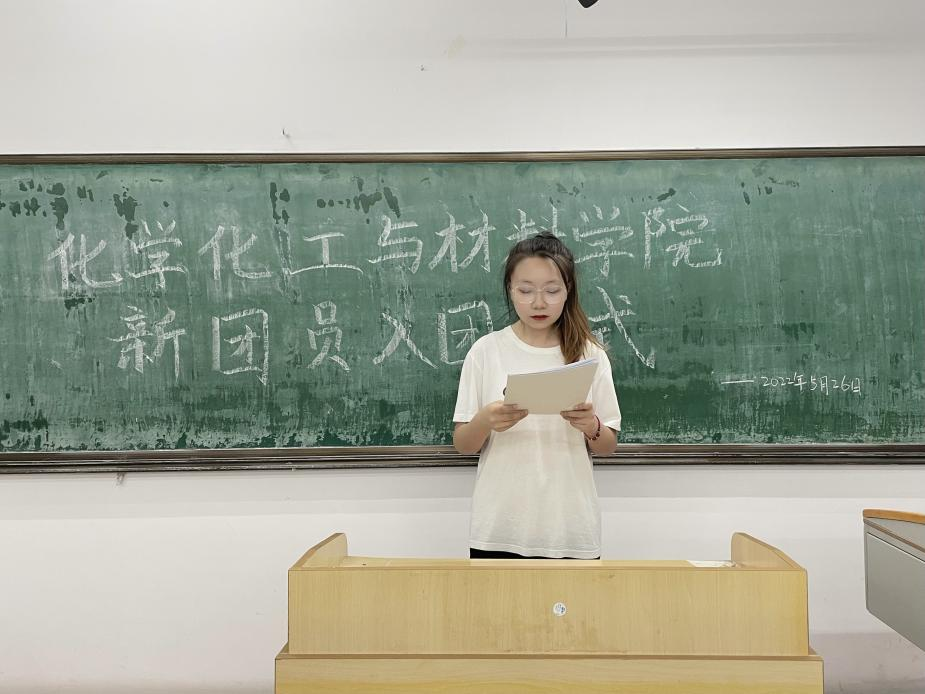 化学化工与材料学院
新团员入团 式
——2022年5月26日